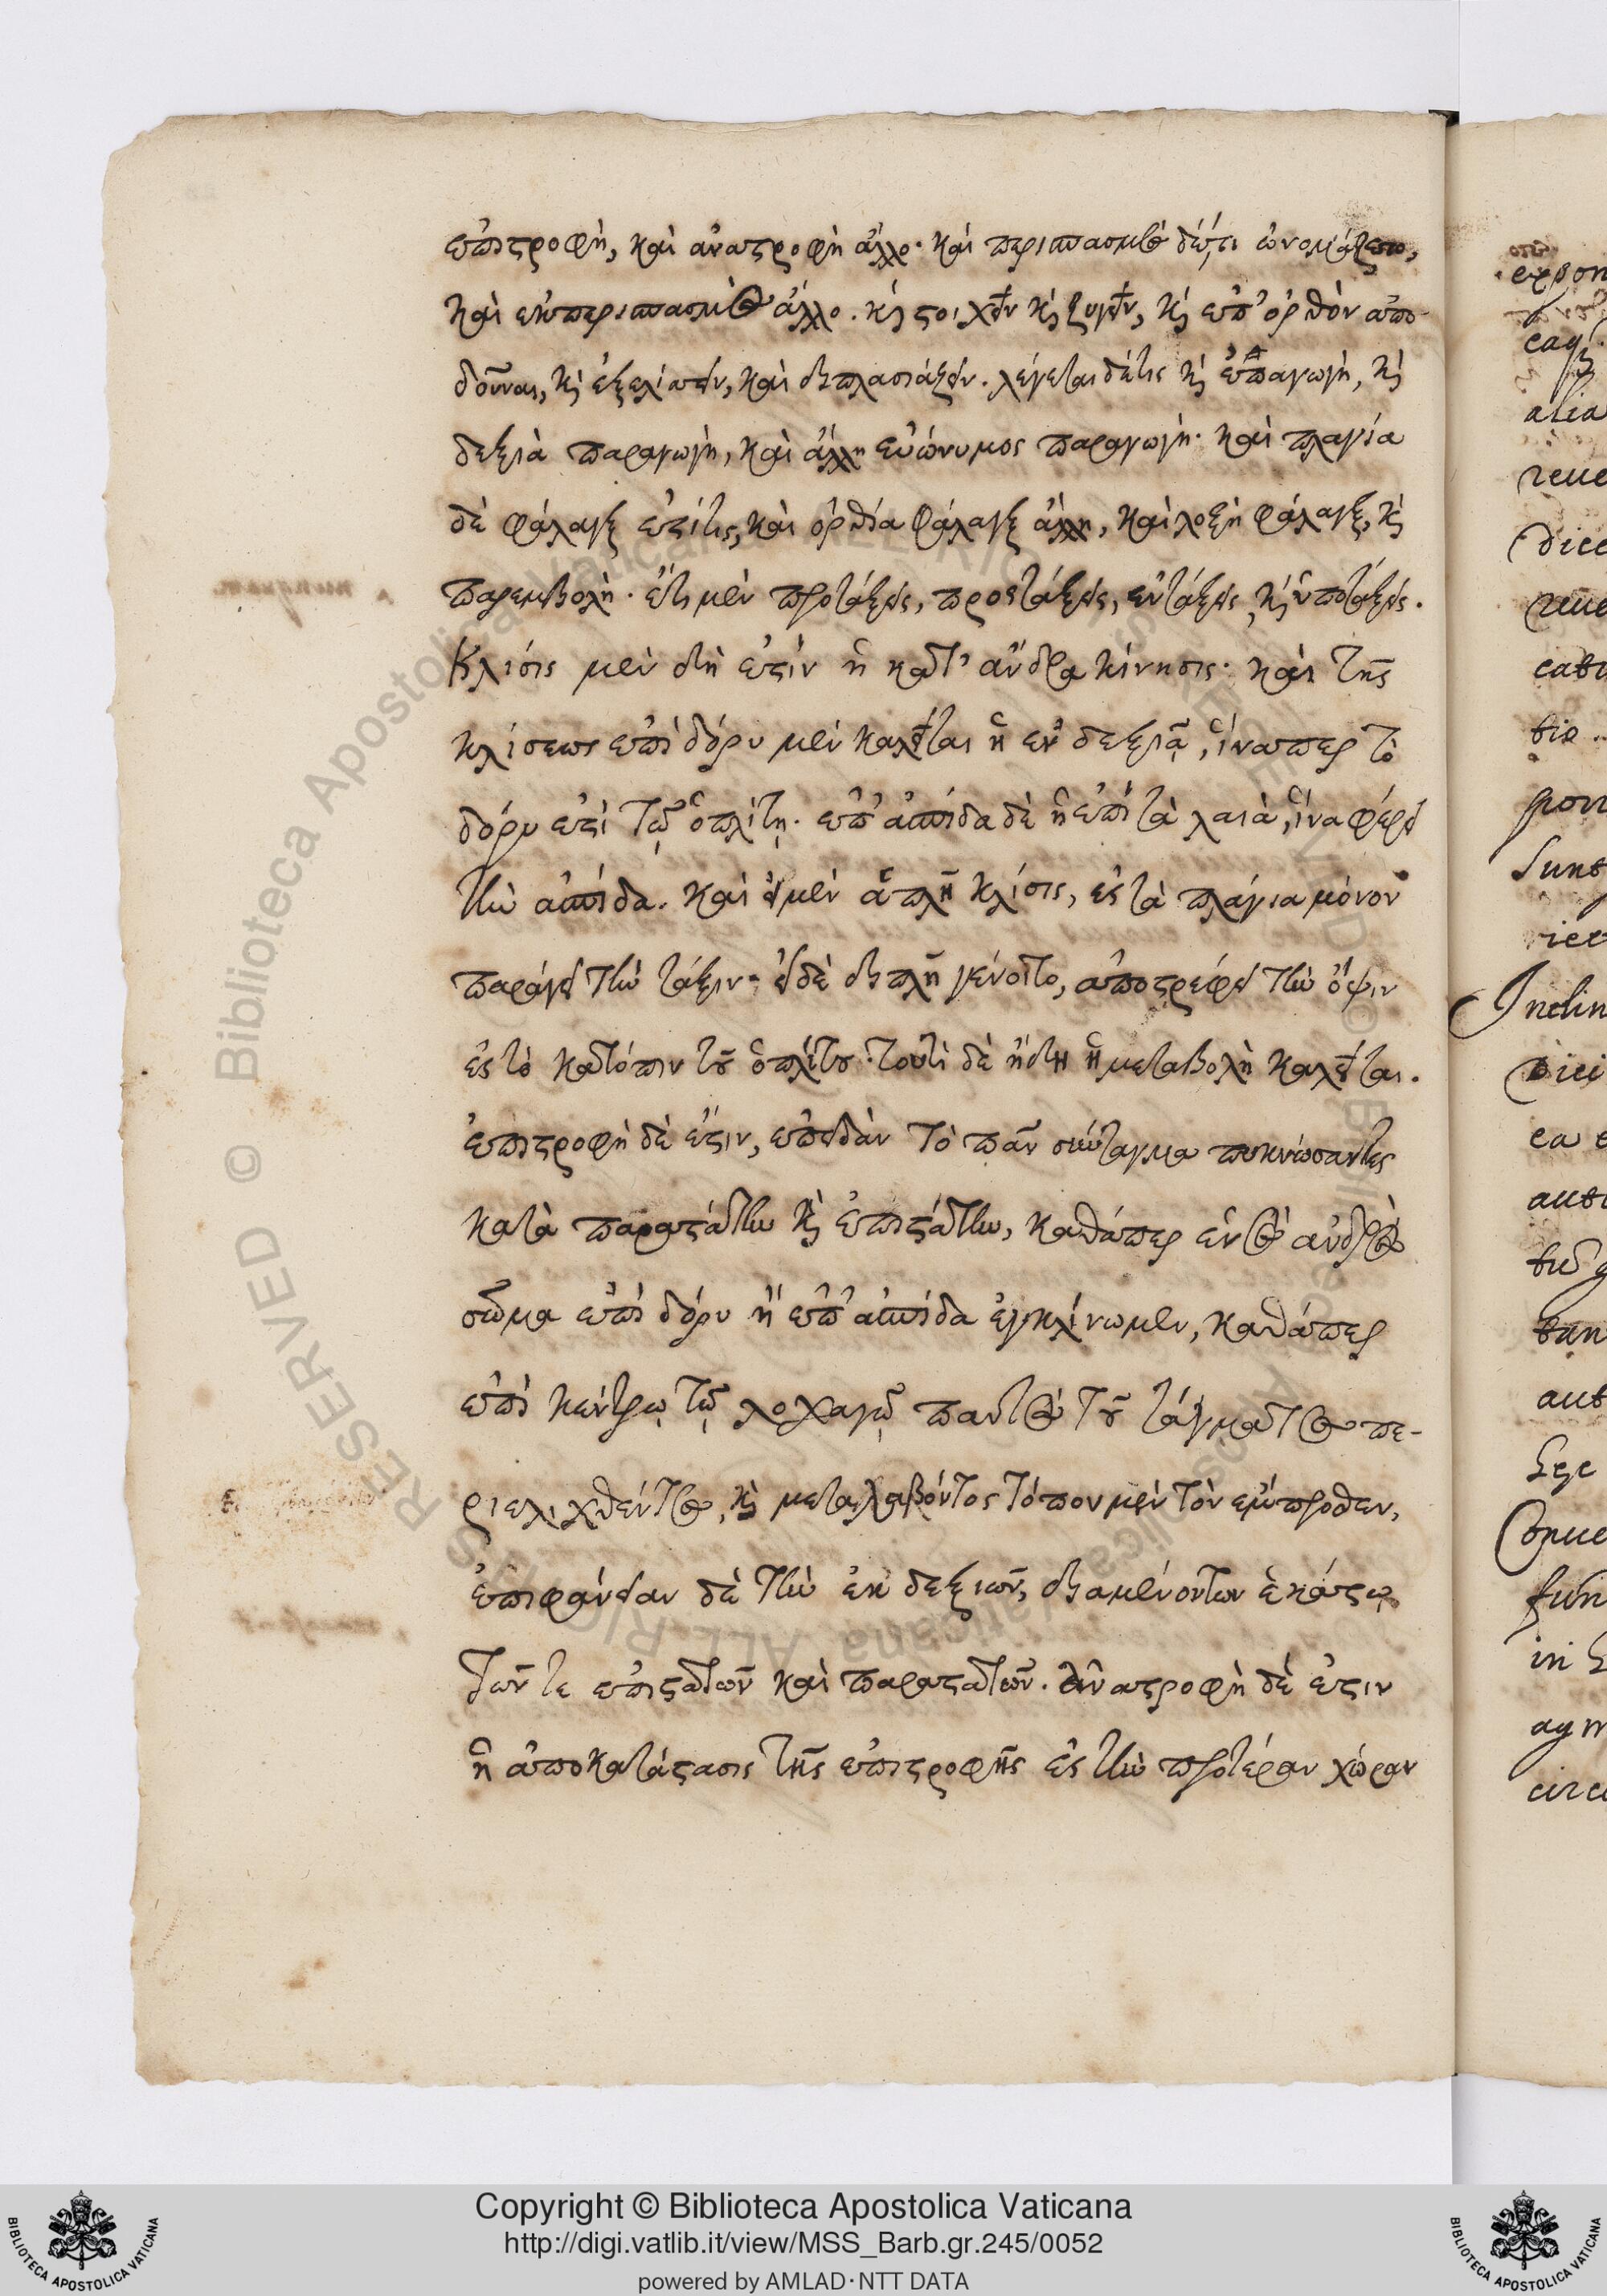 ἐπιστροφὴ, καὶ ἀναστροφὴ ἄλλο· καὶ περισπασμὸς δέ ἐστι ὠνομάζετο,
καὶ ἐκπερισπασμὸς ἄλλο. καὶ στοιχεῖν καὶ ζυγεῖν, καὶ ἐπ' ὀρθὸν ἀπο-
δοῦναι, καὶ ἐξελίσσειν, καὶ διπλασιάζειν. λέγεται δέ τις καὶ ἐπαγωγὴ, καὶ
δεξιὰ παραγωγὴ, καὶ ἄλλη εὐώνυμος παραγωγὴ· καὶ πλαγία
δὲ φάλαγξ ἐστί τις, καὶ ὀρθία φάλαγξ ἄλλη, καὶ λοξὴ φάλαγξ, καὶ
παρεμβολὴ. ἔτι μὲν προτάξεις, προστάξεις, ἐντάξεις, καὶ ὑποτάξεις.
Κλίσις μὲν δὴ ἐστὶν ἡ κατ' ἄνδρα κίνησις· καὶ τῆς
κλίσεως ἐπὶ δόρυ μὲν καλεῖται ἡ ἐν δεξιᾷ, ἵναπερ τὸ
δόρυ ἐστὶ τῷ ὁπλίτῃ. ἐπ' ἀσπίδα δὲ ἡ ἐπὶ τὰ λαιὰ, ἵνα φέρει
τὴν ἀσπίδα. καὶ εἰ μὲν ἁπλῆ κλίσις, ἐς τὰ πλάγια μόνον
παράγει τὴν τάξιν· εἰ δὲ διπλῆ γένοιτο, ἀποστρέφει τὴν ὄψιν
ἐς τὸ κατόπιν τοῦ ὁπλίτου· τουτὶ δὲ ἤδη ἡ μεταβολὴ καλεῖται.
ἐπιστροφὴ δὲ ἔστιν, ἐπειδὰν τὸ πᾶν σύνταγμα πυκνώσαντες
κατὰ παραστάτην καὶ ἐπιστάτην, καθάπερ ἑνὸς ἀνδρὸς
σῶμα ἐπὶ δόρυ ἢ ἐπ' ἀσπίδα ἐγκλίνωμεν, καθάπερ
ἐπὶ κέντρῳ τῷ λοχαγῷ παντὸς τοῦ τάγματος πε-
ριελιχθέντος, καὶ μεταλαβόντος τόπον μὲν τὸν ἔμπροσθεν,
ἐπιφάνειαν δὲ τὴν ἐκ δεξιῶν, διαμενόντων ἑκάστῳ
τῶν τε ἐπιστατῶν καὶ παραστατῶν. ἀναστροφὴ δὲ ἐστιν
ἡ ἀποκατάστασις τῆς ἐπιστροφῆς ἐς τὴν προτέραν χώραν
Copyright © Biblioteca Apostolica Vaticana
http://digi.vatlib.it/view/MSS_Barb.gr.245/0052
powered by AMLAD·NTT DATA